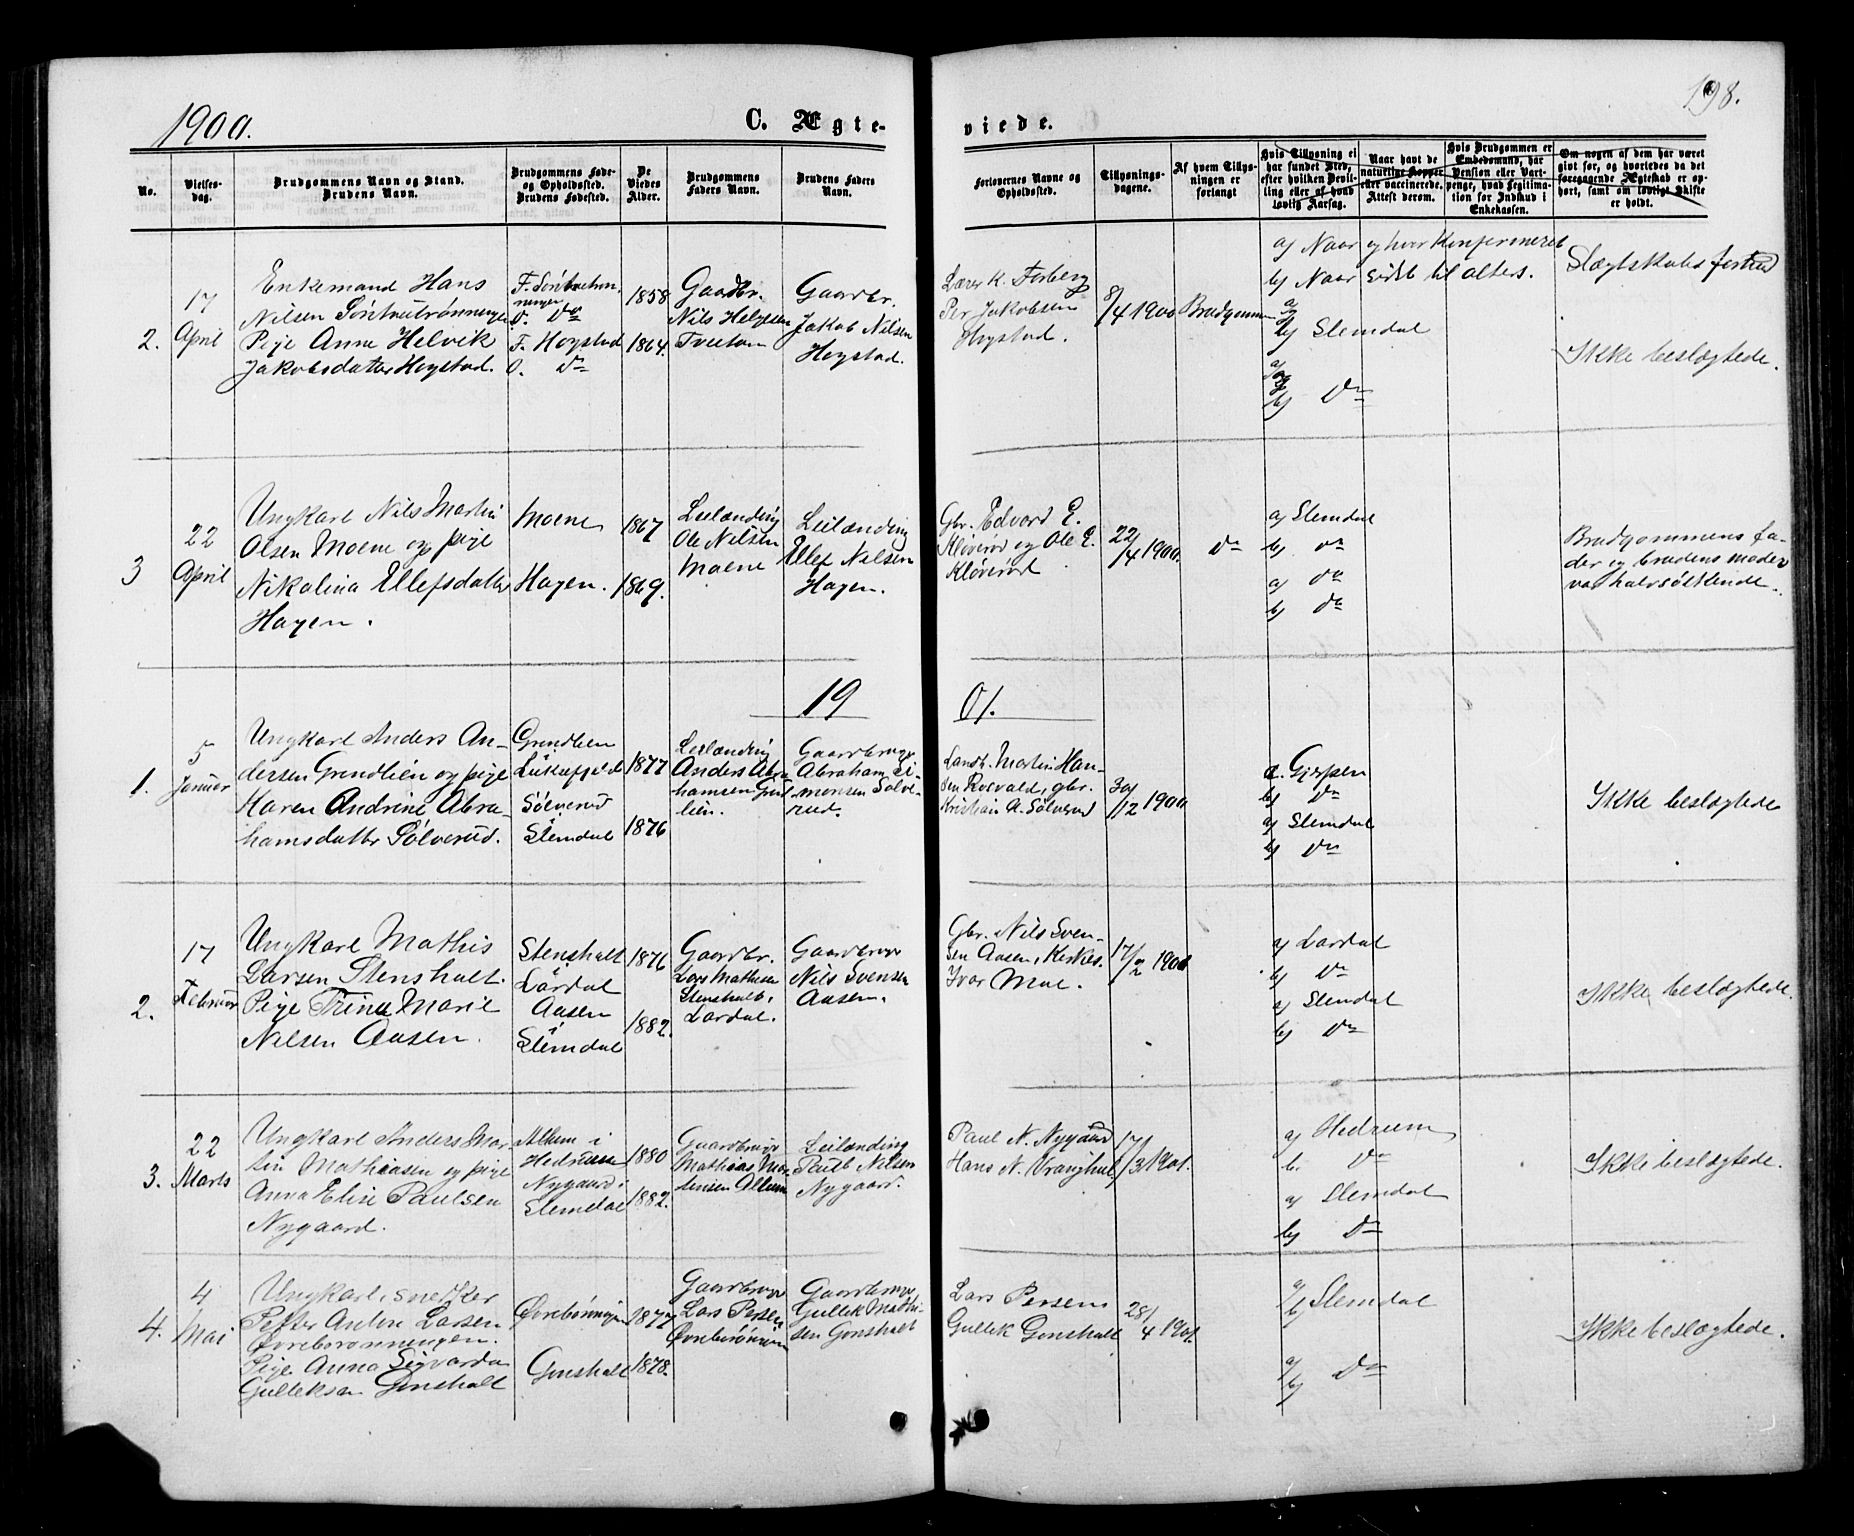 1900.
C. Ægte-
viede.
198.
No.
Vielses-
dag.
Brudgommens Navn og Stand.
Brudens Navn.
Brudgommens Føde-
og Opholdssted.
Brudens Fødested.
De
Viedes
Alder.
Brudgommens
Faders Navn.
Brudens Faders
Navn.
Forlovernes Navne og
Opholdssted.
Tillysnings-
dagene.
Af hvem Tillys-
ningen er
forlangt
Hvis Tillysning ei
har fundet Sted,
efter hvilken Bevil-
ling eller af hvad
lovlig Aarsag.
Naar havt de
naturlige Kopper
eller vaccinerede.
Attest derom.
Hvis Brudgommen er
Embedsmand, har
Pension eller Vart-
penge, hvad Legitima-
tion for Indskud i
Enkekassen.
Om nogen af dem har været
givt før, og hvorledes da det
foregaaende Ægteskab er op-
hørt, samt om lovligt Skifte
er holdt.
a) Naar og hvor Konfirmeret
b) Naar sidst til alters.
Slægtskabsforhold
2.
17
April
Enkemand Hans
Nilsen
Pige Anne Helvik
Jakobsdatter Hogstad.
F. Hogstad
O. Do
1858
1864.
Gaardbr.
Nils Helgesen
Tveitan
Gaardbr.
Jakob Nilsen
Hogstad.
Lærer K. Forberg
Per Jakobsen
Hogstad.
8/4 1900
Brudgommen
b) Slemdal
b) Do
Ikke beslægtede.
3
22
April
Ungkarl Nils Martin
Olsen Moene og pige
Nikolina Ellefsdatter
Hagen.
Moene
Hagen.
1867
1869.
Leilænding
Ole Nilsen
Moene
Leilænding
Ellef Nilsen
Hagen.
Gbr. Edvard E.
Kløverød og Ole E.
Kløverød
22/4 1900.
Do
a) Slemdal
b) Do
a) Do
b) Do
Brudgommens fa-
der og brudens moder
var halvsøskende.
19
01.
1.
5
Januar
Ungkarl Anders An-
dersen Grendlien og pige
Karen Andrine Abra
hamsdatter Sølverud.
Grendlien
Luksefjeld
Sølverud
Slemdal
1877
1876
Leilænding
Anders Abra
hamsen Grend
lien.
Gaardbruger
Abraham Si-
monsen Sølve-
rud.
Landh. Martin Han-
sen Rosvald, gbr.
Kristian A. Sølverud
30/12 1900
a. Gjerpen
b) Do
a) Slemdal
b) Do
Ikke beslægtede
2.
17
Februar
Ungkarl Mathis
Larsen Stensholt.
Pige Trine Marie
Nilsen Aasen.
Stensholt
Lardal
Aasen
Slemdal
1876
1882.
Gaardbr.
Lars Mathisen
Stensholt,
Lardal.
Gaardbruger
Nils Svensen
Aasen.
Gbr. Nils Sven-
sen Aasen, Kirkes.
Ivar Moe.
17/2 1901
a) Lardal
b) Do
a) Slemdal
b) Do
Ikke beslægtede.
3.
22
Marts
Ungkarl Anders Mar-
tin Mathiasen og pige
Anna Elise Paulsen
Nygaard.
Allum i
Hedrum
Nygaard i
Slemdal
1880
1882.
Gaardbruger
Mathias Mor-
tensen Allum
Leilænding
Paul Nilsen
Nygaard.
Paul N. Nygaard
Hans N. Vranghul
17/3 1901.
a) Hedrum
b. Do
a) Slemdal
b) Do
Ikke beslægtede.
4.
4
Mai
Ungkarl, snedker
Petter Anton Larsen
Øvrebønningen.
Pige Anna Sigvarda
Gulleksen Gonsholt
Gonsholt
1877
1878.
Gaardbruger
Lars Persen
Gaardbruger
Gullek Mathi-
sen Gonsholt
Lars Persen
Gullek Gonsholt
28/4 1901.
a/b) Slemdal
a/b) Do
Ikke beslægtede.